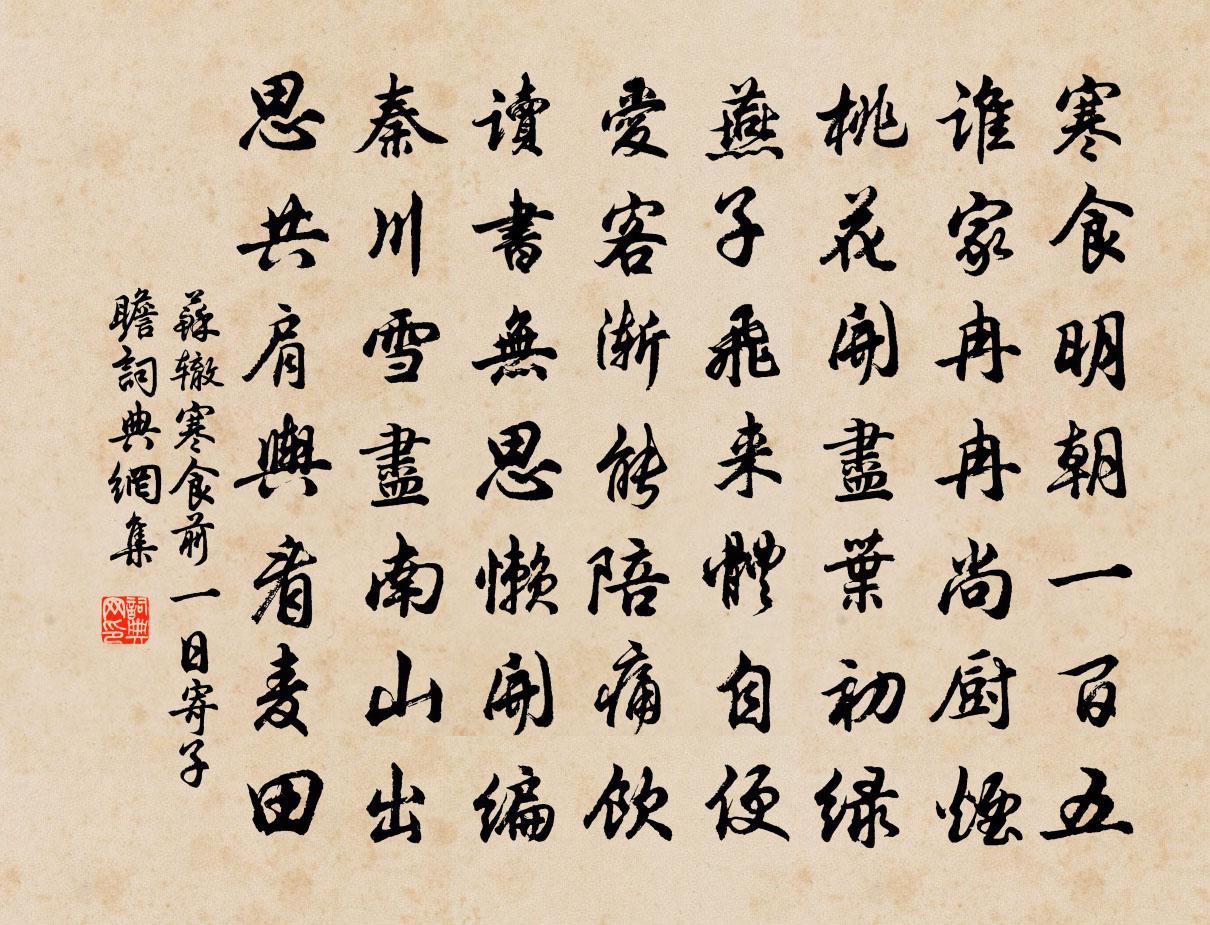 寒食明朝一百五
谁家冉冉尚厨煙
桃花開盡葉初绿
燕子飛来體自便
愛客漸能陪痛飲
读書無思懒開编
秦川雪盡南山出
思共肩輿看麦田
蘇辙寒食前一日寄子
瞻詞典網集
詞典网印